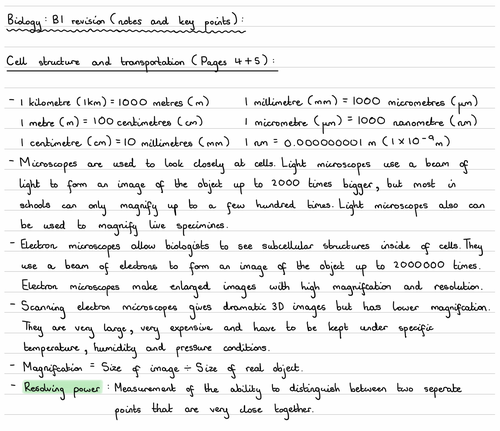 Biology: B1 revision (notes and key points):
Cell structure and transportation (Pages 4+5):
- 1 kilometre (1km) = 1000 metres (m) 1 millimetre (mm) = 1000 micrometres (μm)
1 metre (m) = 100 centimetres (cm) 1 micrometre (μm) = 1000 nanometre (nm)
1 centimetre (cm) = 10 millimetres (mm) 1 nm = 0.000000001 m (1×10⁻⁹m)
- Microscopes are used to look closely at cells. Light microscopes use a beam of
light to form an image of the object up to 2000 times bigger, but most in
schools can only magnify up to a few hundred times. Light microscopes also can
be used to magnify live specimines.
- Electron microscopes allow biologists to see subcellular structures inside of cells. They
use a beam of electrons to form an image of the object up to 2000000 times.
Electron microscopes make enlarged images with high magnifcation and resolution.
- Scanning electron microscopes gives dramatic 3D images but has lower magnifcation.
They are very large, very expensive and have to be kept under specific
temperature, humidity and pressure conditions.
- Magnifcation = Size of image ÷ Size of real object.
- Resolving power: Measurement of the ability to distinguish between two seperate
points that are very close together.